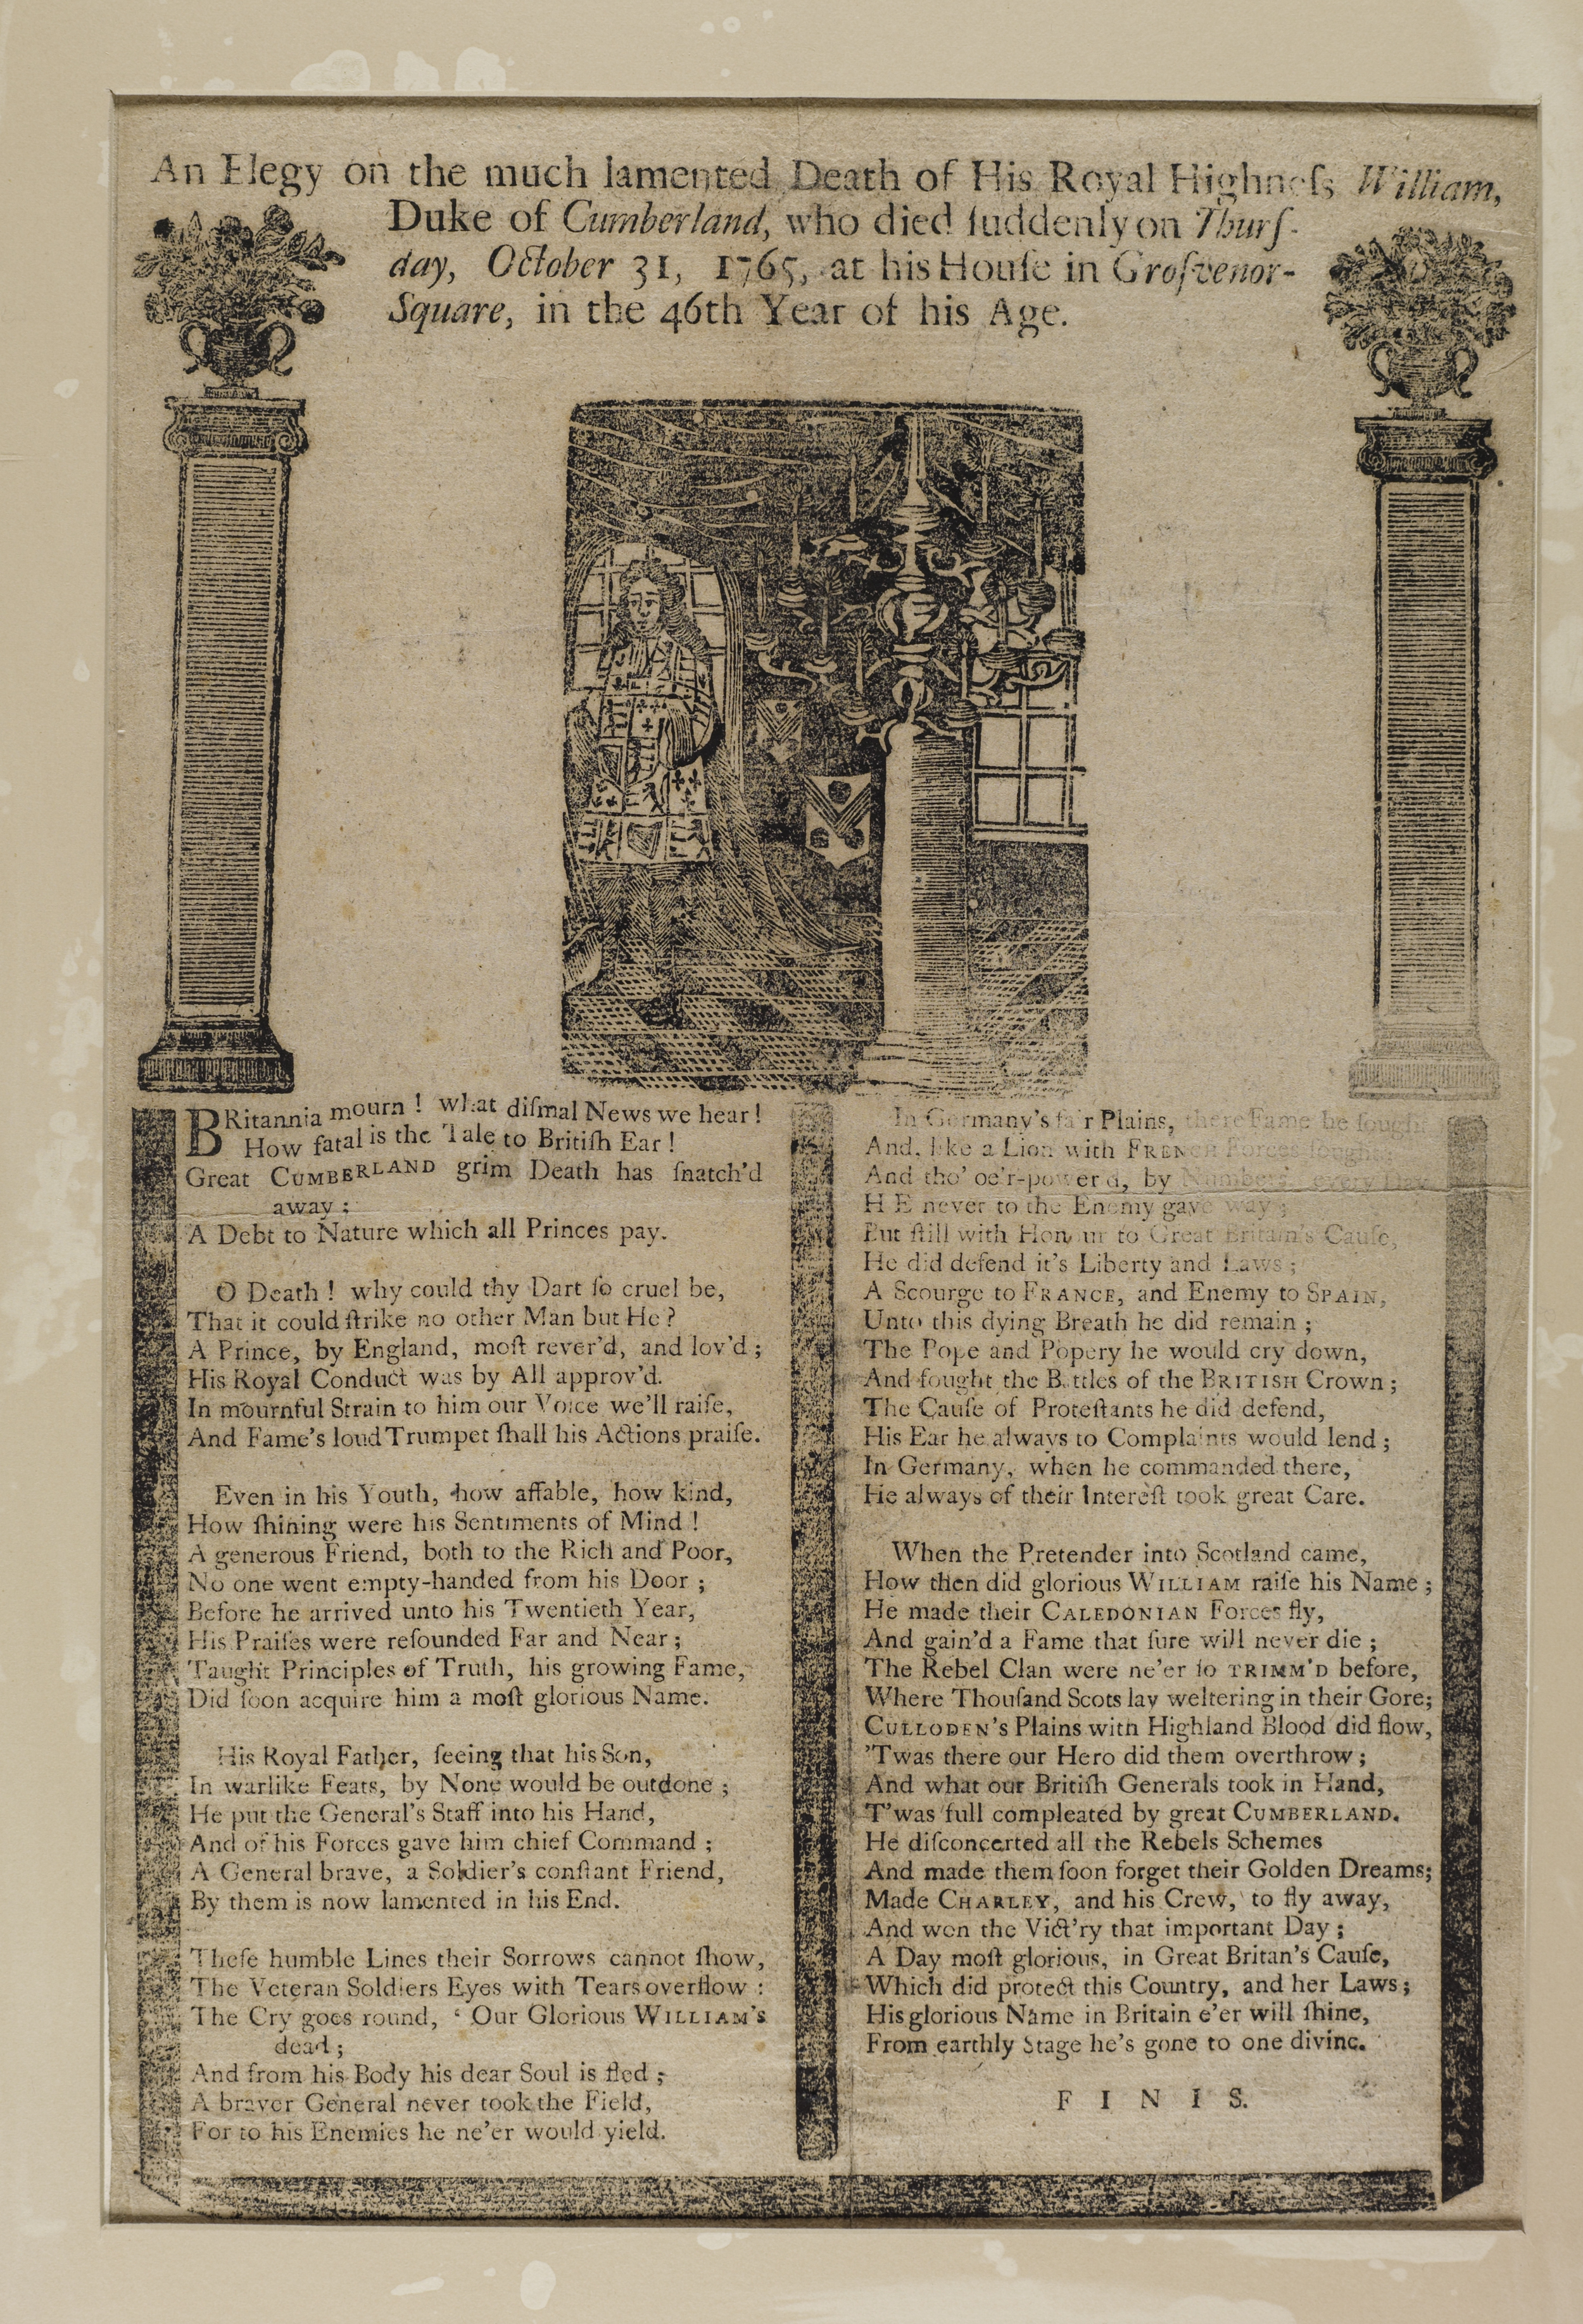 An Elegy on the much lamented Death of His Royal Highneſs William,
Duke of Cumberland, who died ſuddenly on Thurſ-
day, October 31, 1765, at his Houſe in Groſvenor-
Square, in the 46th Year of his Age.
BRitannia mourn ! what diſmal News we hear !
How fatal is the Tale to Britiſh Ear !
Great CUMBERLAND grim Death has ſnatch'd
away ;
A Debt to Nature which all Princes pay.
O Death ! why could thy Dart ſo cruel be,
That it could ſtrike no other Man but He ?
A Prince, by England, moſt rever'd, and lov'd ;
His Royal Conduct was by All approv'd.
In mournful Strain to him our Voice we'll raiſe,
And Fame's loud Trumpet ſhall his Actions praiſe.
Even in his Youth, how affable, how kind,
How ſhining were his Sentiments of Mind !
A generous Friend, both to the Rich and Poor,
No one went empty-handed from his Door ;
Before he arrived unto his Twentieth Year,
His Praiſes were reſounded Far and Near ;
Taught Principles of Truth, his growing Fame,
Did ſoon acquire him a moſt glorious Name.
His Royal Father, ſeeing that his Son,
In warlike Feats, by None would be outdone ;
He put the General's Staff into his Hand,
And of his Forces gave him chief Command ;
A General brave, a Soldier's conſtant Friend,
By them is now lamented in his End.
Theſe humble Lines their Sorrows cannot ſhow,
The Veteran Soldiers Eyes with Tears overflow :
The Cry goes round, ‘ Our Glorious WILLIAM's
dead ;
And from his Body his dear Soul is fled ;
A braver General never took the Field,
For to his Enemies he ne'er would yield.
In Germany's fair Plains, there Fame he ſought
And, like a Lion with FRENCH Forces fought
And tho' oe'r-power'd, by Numbers every Day
HE never to the Enemy gave way ;
But ſtill with Honour to Great Britain's Cauſe,
He did defend it's Liberty and Laws ;
A Scourge to FRANCE, and Enemy to SPAIN,
Unto this dying Breath he did remain ;
The Pope and Popery he would cry down,
And fought the Battles of the BRITISH Crown ;
The Cauſe of Proteſtants he did defend,
His Ear he always to Complaints would lend ;
In Germany, when he commanded there,
He always of their Intereſt took great Care.
When the Pretender into Scotland came,
How then did glorious WILLIAM raiſe his Name ;
He made their CALEDONIAN Forces fly,
And gain'd a Fame that ſure will never die ;
The Rebel Clan were ne'er ſo TRIMM'D before,
Where Thouſand Scots lay weltering in their Gore;
CULLODEN's Plains with Highland Blood did flow,
'Twas there our Hero did them overthrow ;
And what our Britiſh Generals took in Hand,
T'was full compleated by great CUMBERLAND.
He diſconcerted all the Rebels Schemes
And made them ſoon forget their Golden Dreams;
Made CHARLEY, and his Crew, to fly away,
And won the Vict'ry that important Day ;
A Day moſt glorious, in Great Britan's Cauſe,
Which did protect this Country, and her Laws ;
His glorious Name in Britain e'er will ſhine,
From earthly Stage he's gone to one divine.
F I N I S.